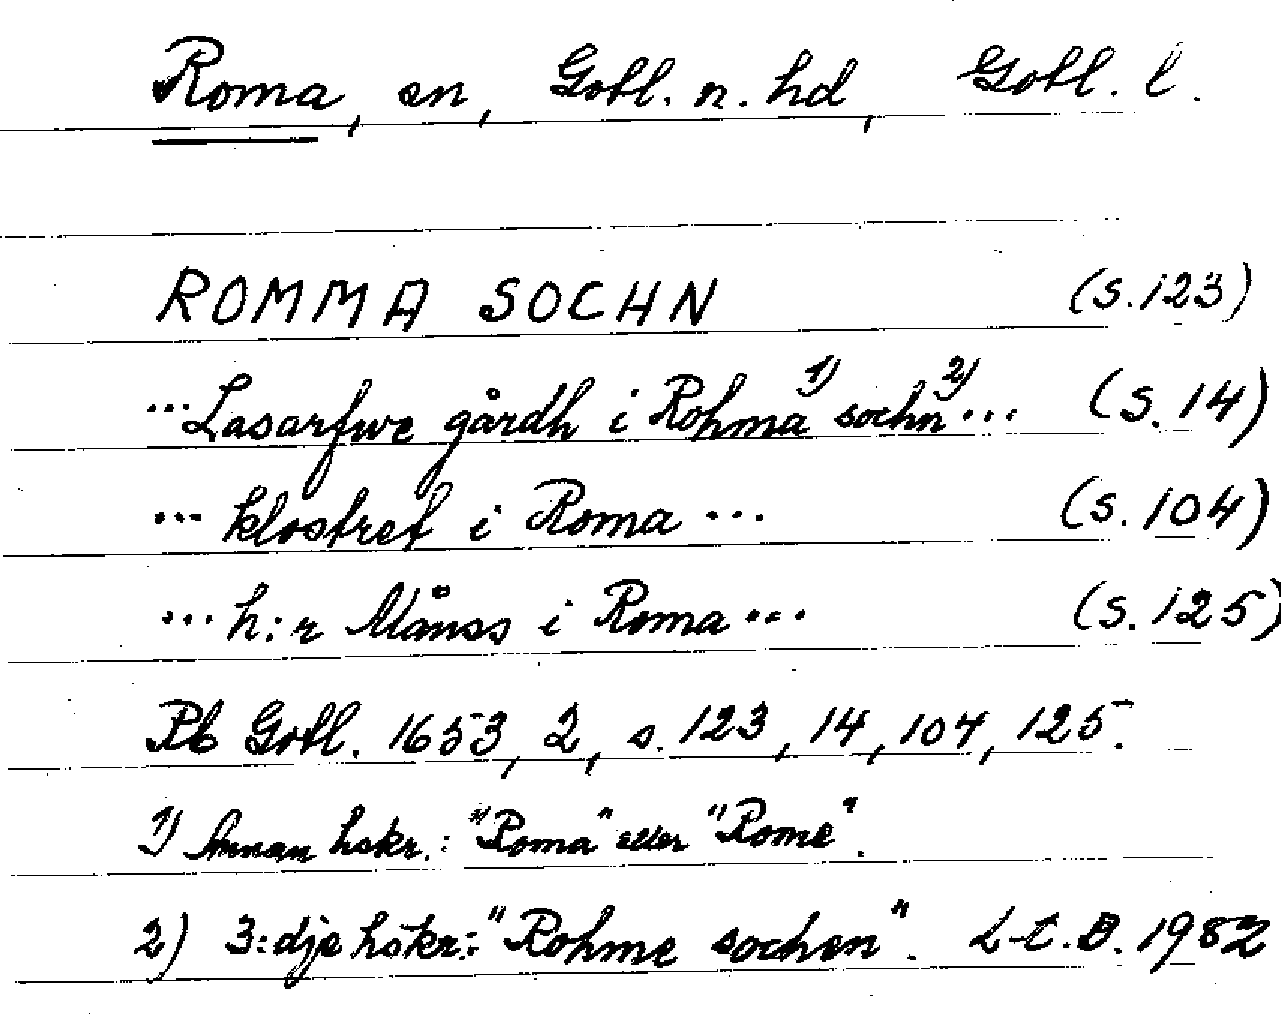 Roma, sn, Gotl. n. hd, Gotl. l.
ROMMA SOCHN (s. 123)
...Lasarfwe gårdh i Rohma 1) sochn 2)... (s. 14)
... klostret i Roma ... (s. 104)
... h:r Månss i Roma ... (s. 125)
Rb Gotl. 1653, 2, s. 123, 14, 104, 125.
1) Annan hskr.: "Roma" eller "Rome".
2) 3:dje hskr.: "Rohme sochen". L-C.B. 1982